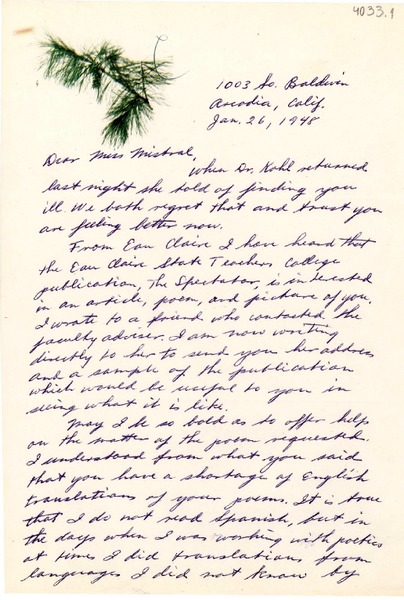 4033.1
1003 So. Baldwin
Arcadia, Calif.
Jan. 26, 1948
Dear Miss Mistral,
When Dr. Kohl returned
last night she told of finding you
ill. We both regret that and trust you
are feeling better now.
From Eau Claire I have heard that
the Eau Claire State Teachers College
publication, The Spectator, is interested
in an article, poem, and picture of you.
I wrote to a friend who contacted the
faculty adviser. I am now writing
directly to her to send you her address
and a sample of the publication
which would be useful to you in
seeing what it is like.
May I be so bold as to offer help
on the matter of the poem requested.
I understood from what you said
that you have a shortage of English
translations of your poems. It is true
that I do not read Spanish, but in
the days when I was working with poetics
at times I did translations from
languages I did not know by